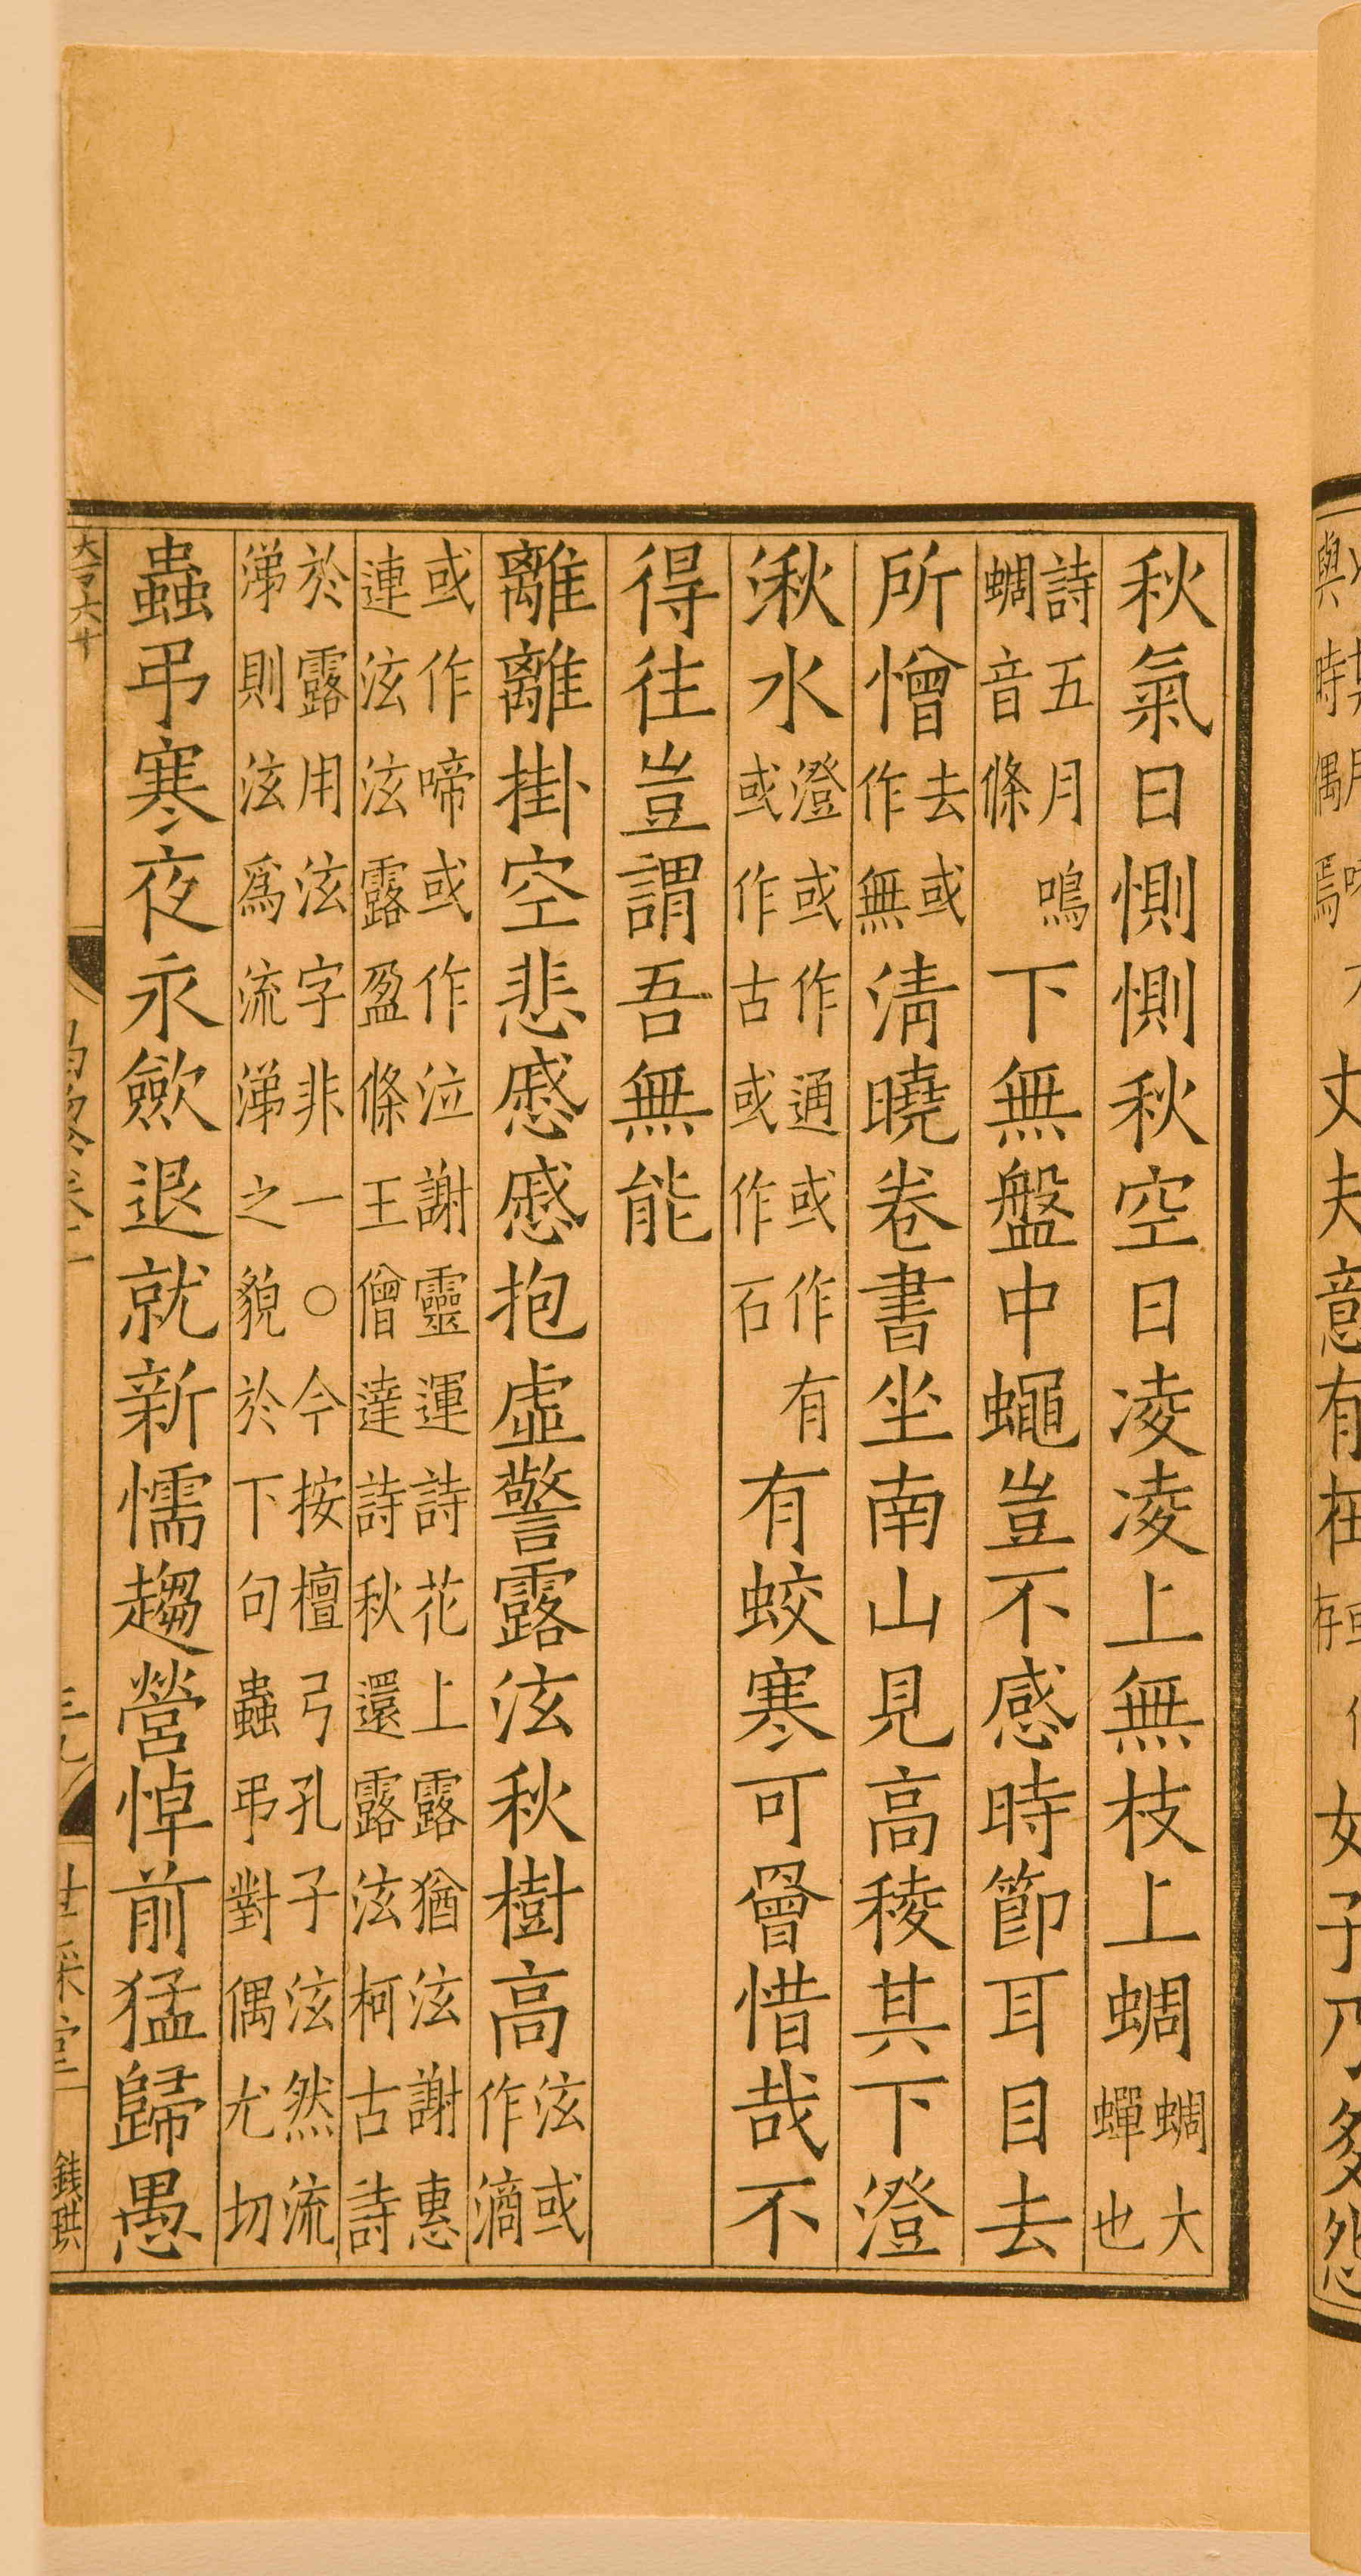 秋氣日惻惻秋空日凌凌上無枝上蜩蜩大蟬也
詩五月鳴蜩音條下無盤中蠅豈不感時節耳目去
所憎去或作無淸曉卷書坐南山見高稜其下澄
湫水澄或作通或作有或作古或作石有蛟寒可曾惜哉不
得往豈謂吾無能
離離掛空悲慼慼抱虛警露泫秋樹高泫或作滴
或作啼或作泣謝靈運詩花上露猶泫謝惠連泫泫露盈條王僧達詩秋還露泫柯古詩
於露用泫字非一○今按檀弓孔子泫然流涕則泫爲流涕之貌於下句蟲弔對偶尤切
蟲弔寒夜永歛退就新懦趨營悼前猛歸愚
丈夫意有在
女子乃多怨